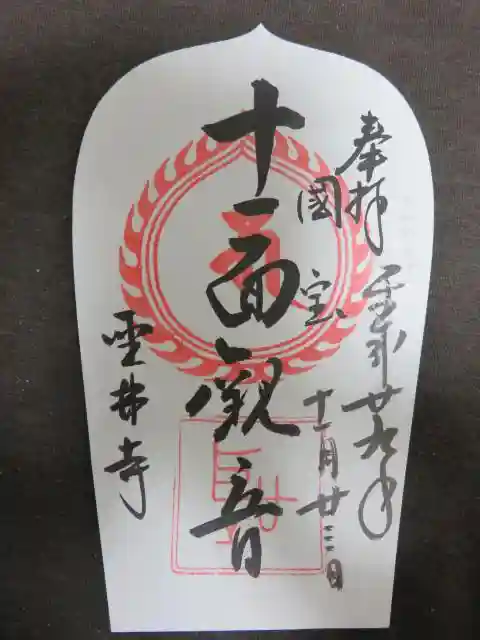 奉拝
平成廿九年
國宝
十一月廿三日
十一面観音
聖林寺